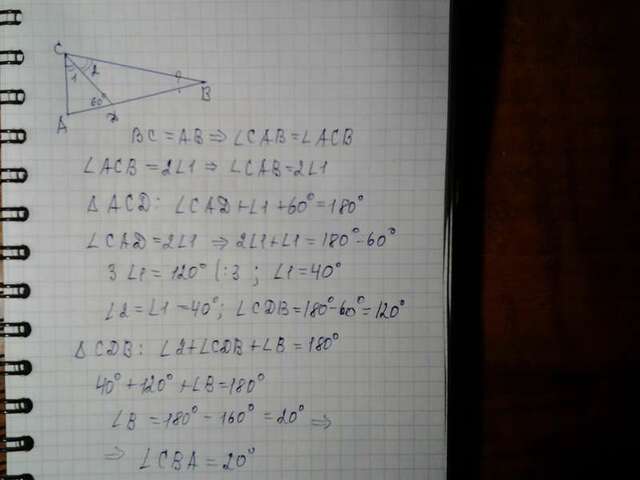 C
1 2
60°
B
A D
BC = AB ⇒ ∠CAB = ∠ACB
∠ACB = 2∠1 ⇒ ∠CAB = 2∠1
△ ACD: ∠CAD + ∠1 + 60° = 180°
∠CAD = 2∠1 ⇒ 2∠1 + ∠1 = 180° - 60°
3∠1 = 120° |:3 ; ∠1 = 40°
∠2 = ∠1 = 40°; ∠CDB = 180° - 60° = 120°
△ CDB: ∠2 + ∠CDB + ∠B = 180°
40° + 120° + ∠B = 180°
∠B = 180° - 160° = 20° ⇒
⇒ ∠CBA = 20°